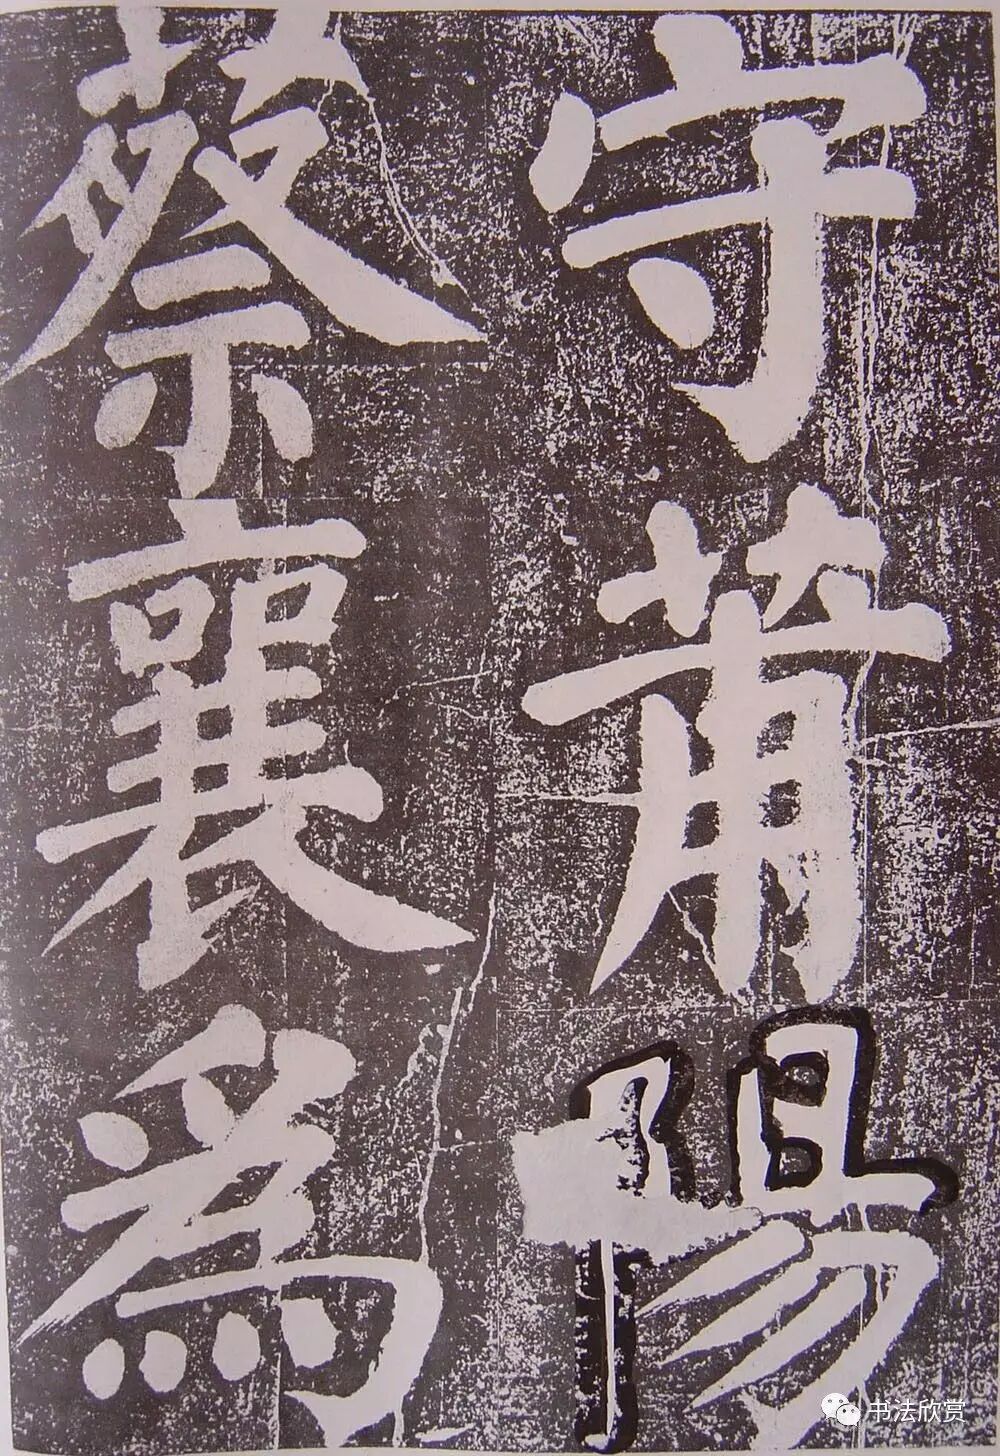 守莆陽
蔡襄為
书法欣赏